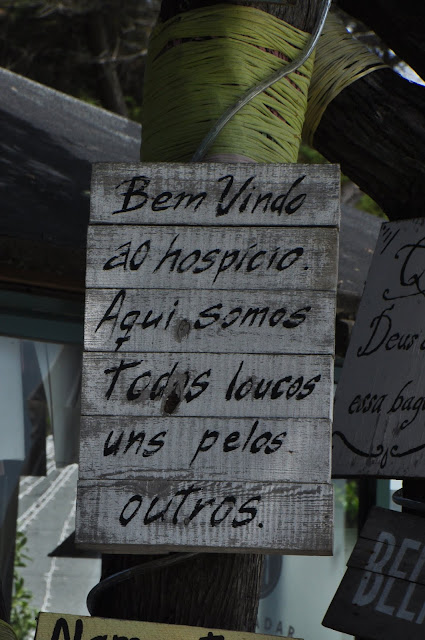 Bem Vindo
ao hospício.
Aqui somos
Todos loucos
uns pelos
outros.
Deus
essa